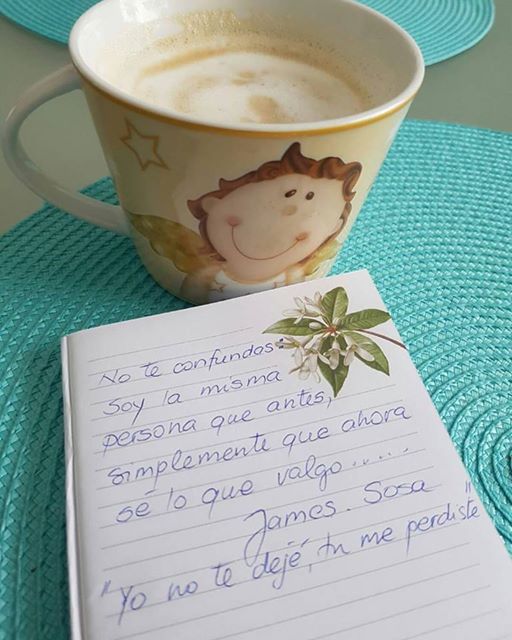 No te confundas:
Soy la misma
persona que antes,
simplemente que ahora
sé lo que valgo.....
James. Sosa
"Yo no te dejé, tu me perdiste"